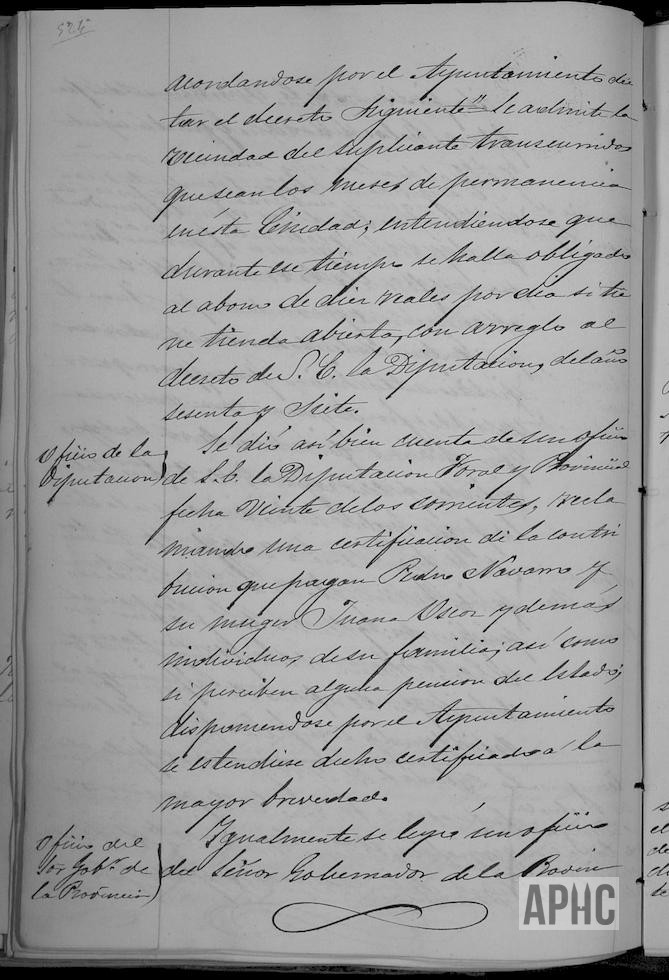 525
acordandose por el Ayuntamiento dic
tar el decreto siguiente "Se admite la
vecindad del suplicante transcurridos
que sean los meses de permanencia
en ésta Ciudad; entendiendose que
durante ese tiempo se halla obligado
al abono de diez reales por dia si tie
ne tienda abierta, con arreglo al
decreto de S. E. la Diputacion, del año
sesenta y siete.
Oficio de la
Diputacion
Se dió asi bien cuenta de un oficio
de S. E. la Diputacion Foral y Provincial
fecha veinte de los corrientes, recla
mando una certificacion de la contri
bucion que pagan Pedro Navarro y
su muger Juana Uscor y demás
individuos de su familia; así como
si perciben alguna pension del Estado;
disponiendose por el Ayuntamiento
se estendiese dicho certificado á la
mayor brevedad.
Oficio del
Sor Gobr. de
la Provincia
Igualmente se leyó un oficio
del Señor Gobernador de la Provin
APHC